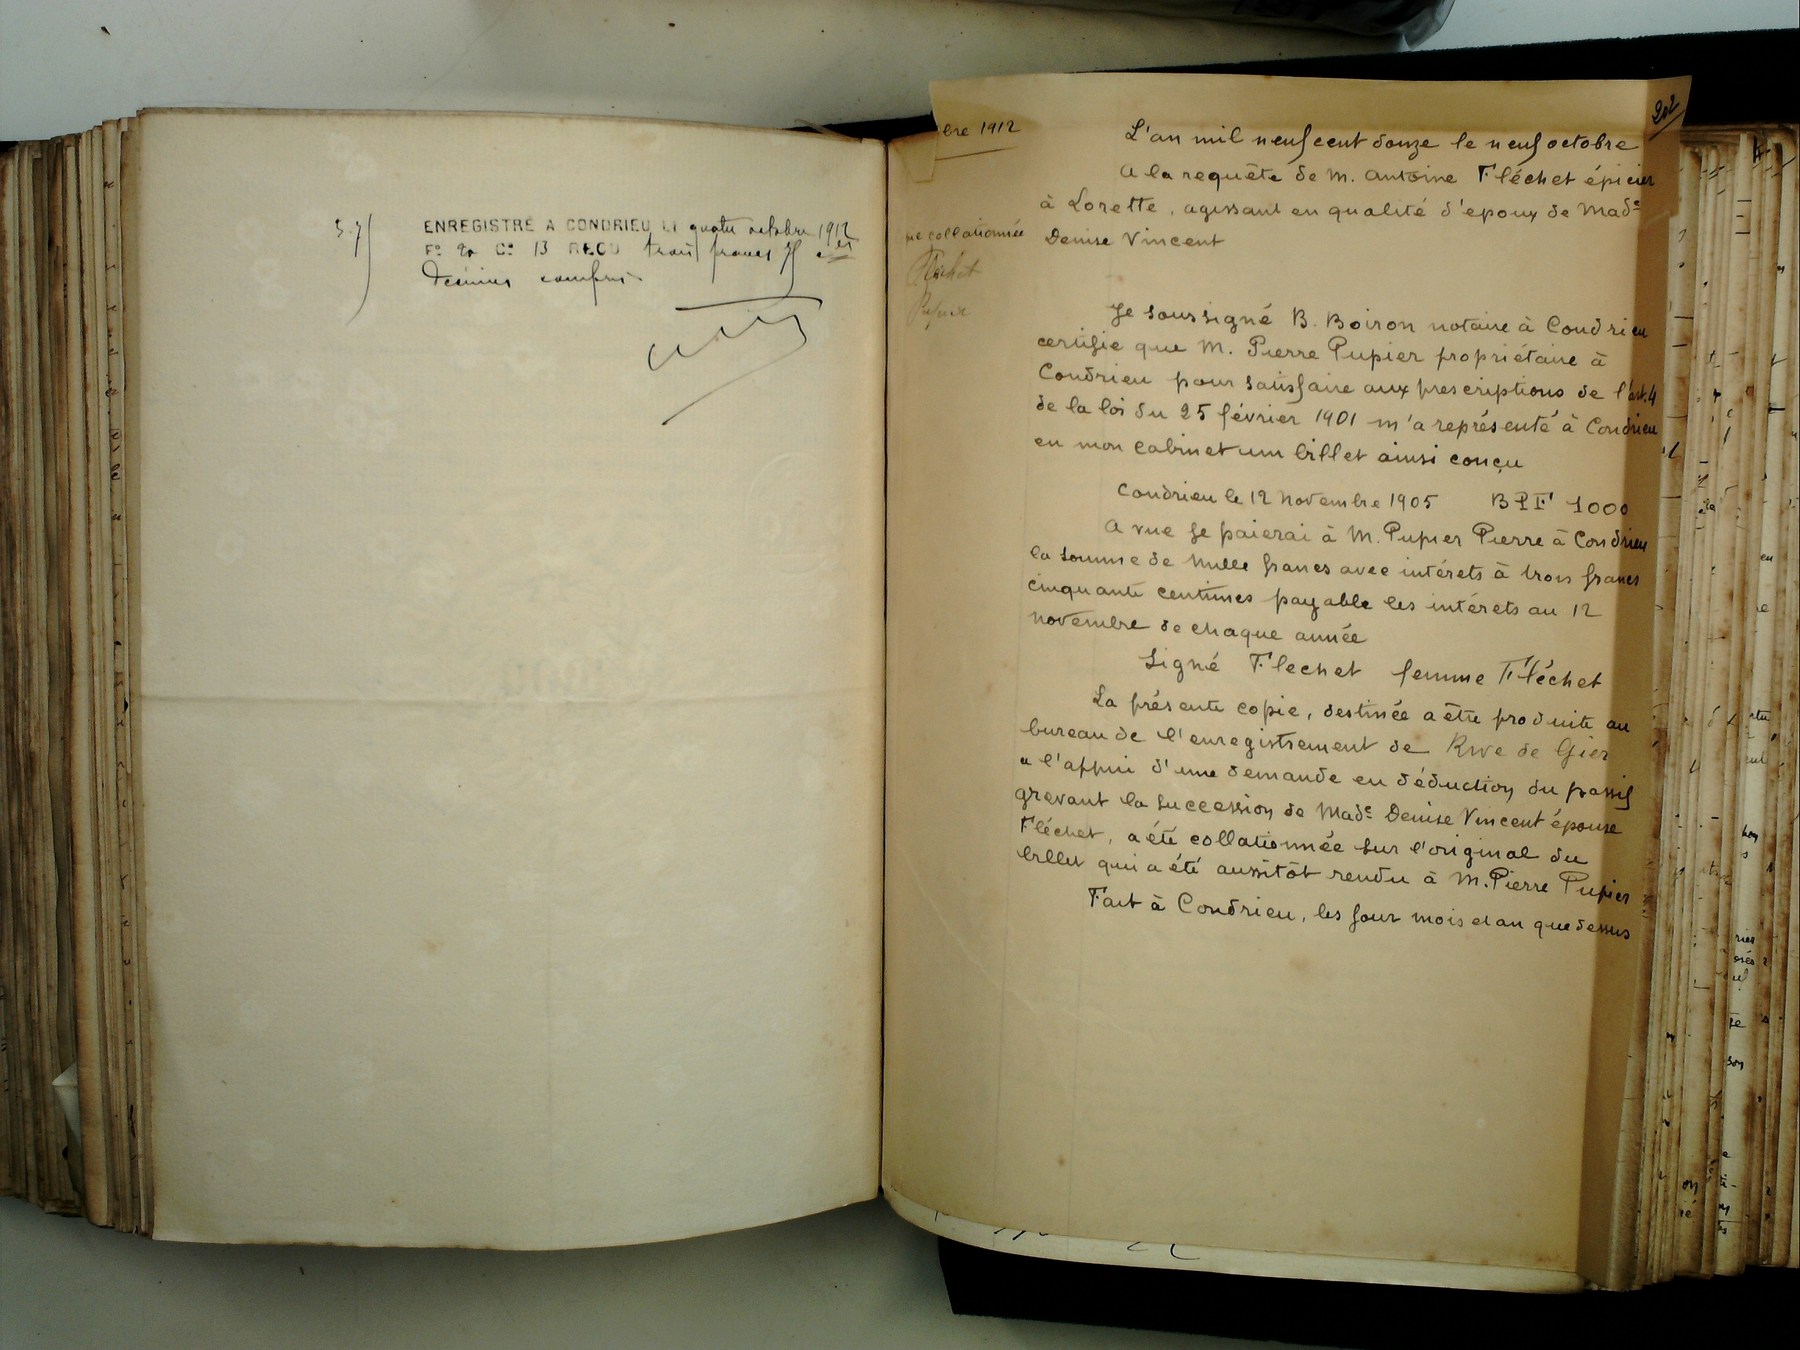 3.75
ENREGISTRÉ A CONDRIEU LE quatre octobre 1912
F° 20 C° 13 REÇU trois francs 75 c
décimes compris
202
bre 1912
L'an mil neuf cent douze le neuf octobre
A la requête de M. Antoine Fléchet épicier
à Lorette, agissant en qualité d'epoux de Made
ie collationnée
Denise Vincent
Flechet
Pupier
Je soussigné B. Boiron notaire à Condrieu
certifie que M. Pierre Pupier propriétaire à
Condrieu pour satisfaire aux prescriptions de l'art. 4
de la loi du 25 février 1901 m'a représenté à Condrieu
en mon cabinet un billet ainsi conçu
Condrieu le 12 novembre 1905 BPF 1000
A vue je paierai à M. Pupier Pierre à Condrieu
la somme de mille francs avec intérets à trois francs
cinquante centimes payable les intérets au 12
novembre de chaque année
Signé Flechet femme Fléchet
La présente copie, destinée a être produite au
bureau de l'enregistrement de Rive de Gier
a l'appui d'une demande en déduction du passif
grevant la succession de Made Denise Vincent épouse
Fléchet, a été collationnée sur l'original du
billet qui a été aussitôt rendu à M. Pierre Pupier
Fait à Condrieu, les jour mois et an que dessus